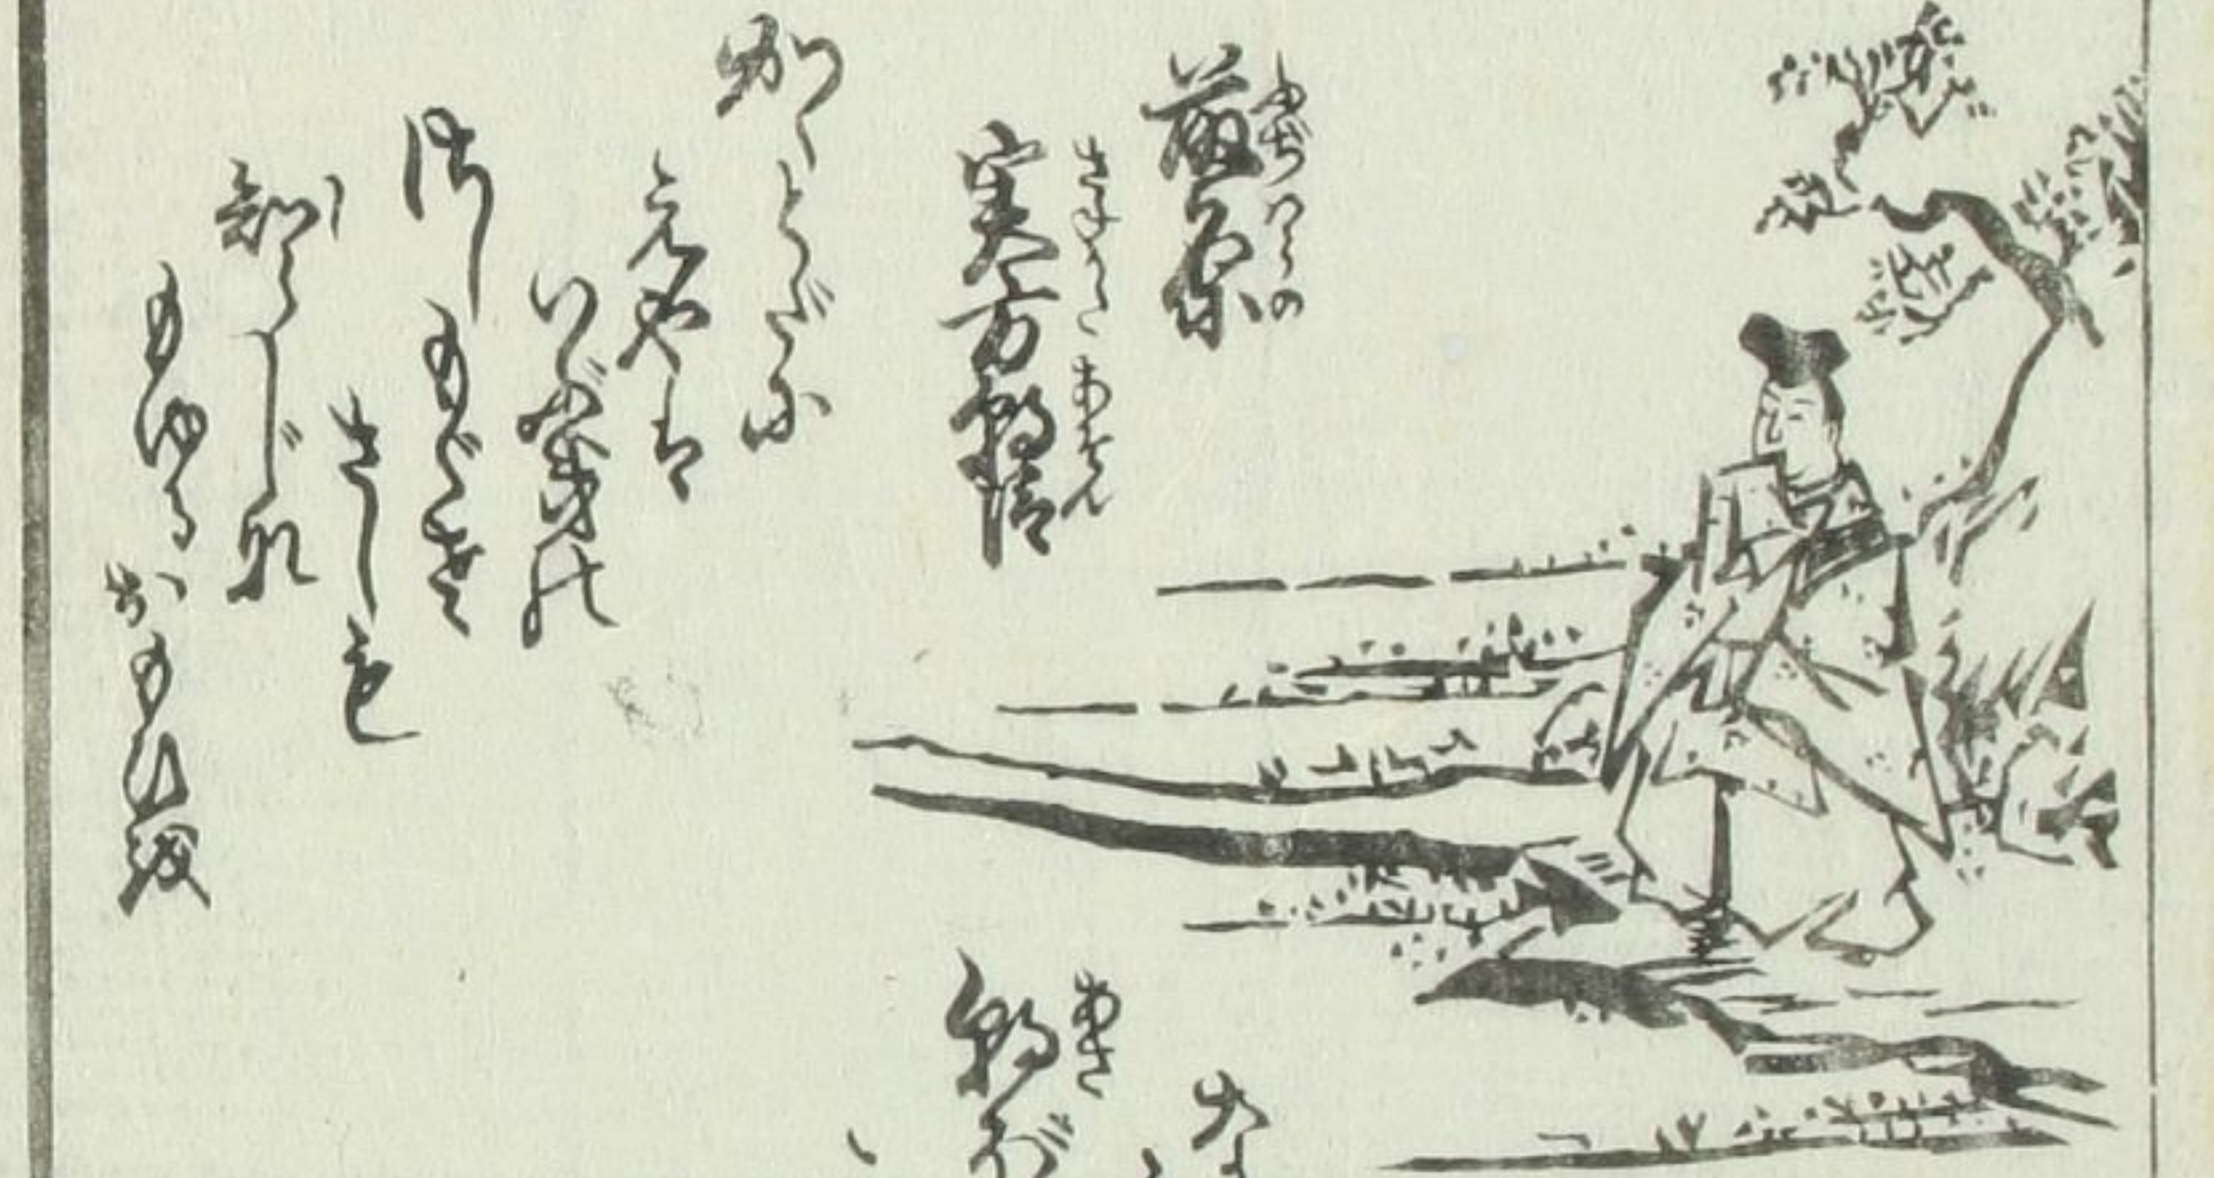 ふぢハらの
藤原
さねかた あそん
実方朝臣
かくとだに
えやは
いぶきの
さしもぐさ
さしも
知らじな
もゆるおもひを
あさ
朝ぼ